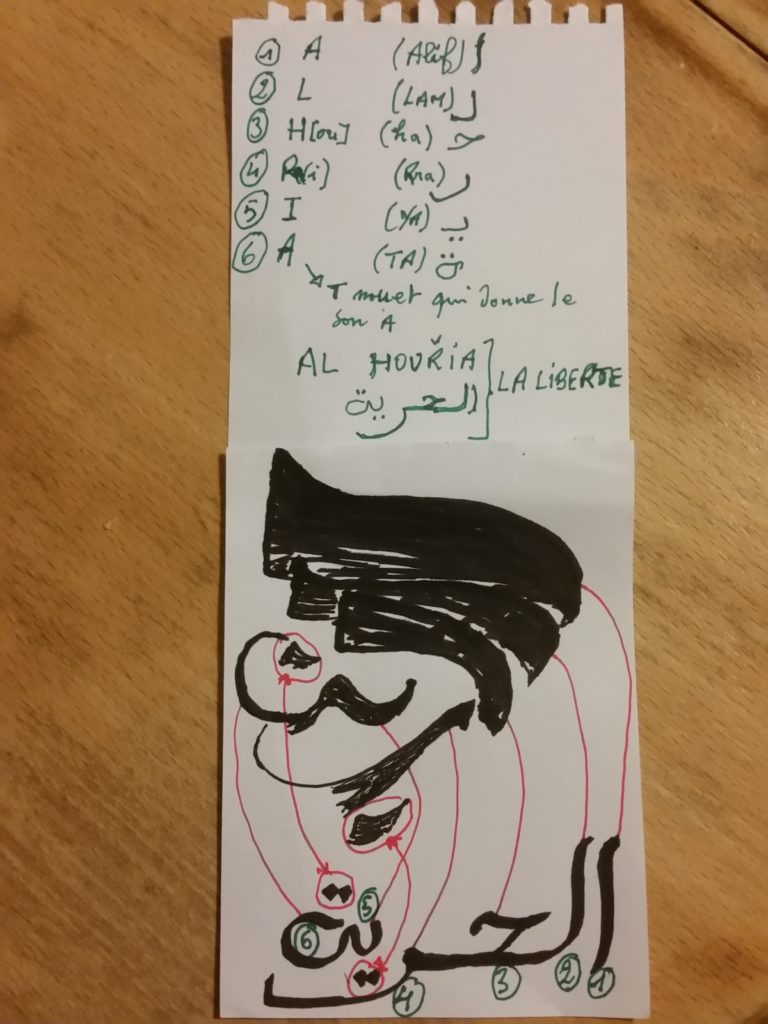 1 A (Alif) ا
2 L (LAM) ل
3 H[ou] (ha) ح
4 R[i] (Rra) ر
5 I (YA) يـ
6 A (TA) ة
T muet qui donne le
son A
AL HOUŘIA
الحرية
LA LIBERTE
5
6
الحرية
4 3 2 1